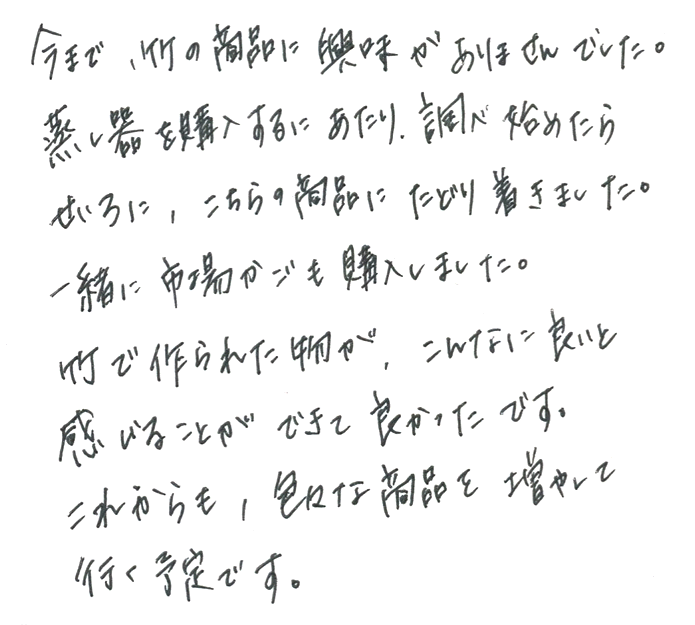 今まで、竹の商品に興味がありませんでした。
蒸し器を購入するにあたり、調べ始めたら
せいろに、こちらの商品にたどり着きました。
一緒に市場かごも購入しました。
竹で作られた物が、こんなに良いと
感じることができて良かったです。
これからも、色々な商品を増やして
行く予定です。